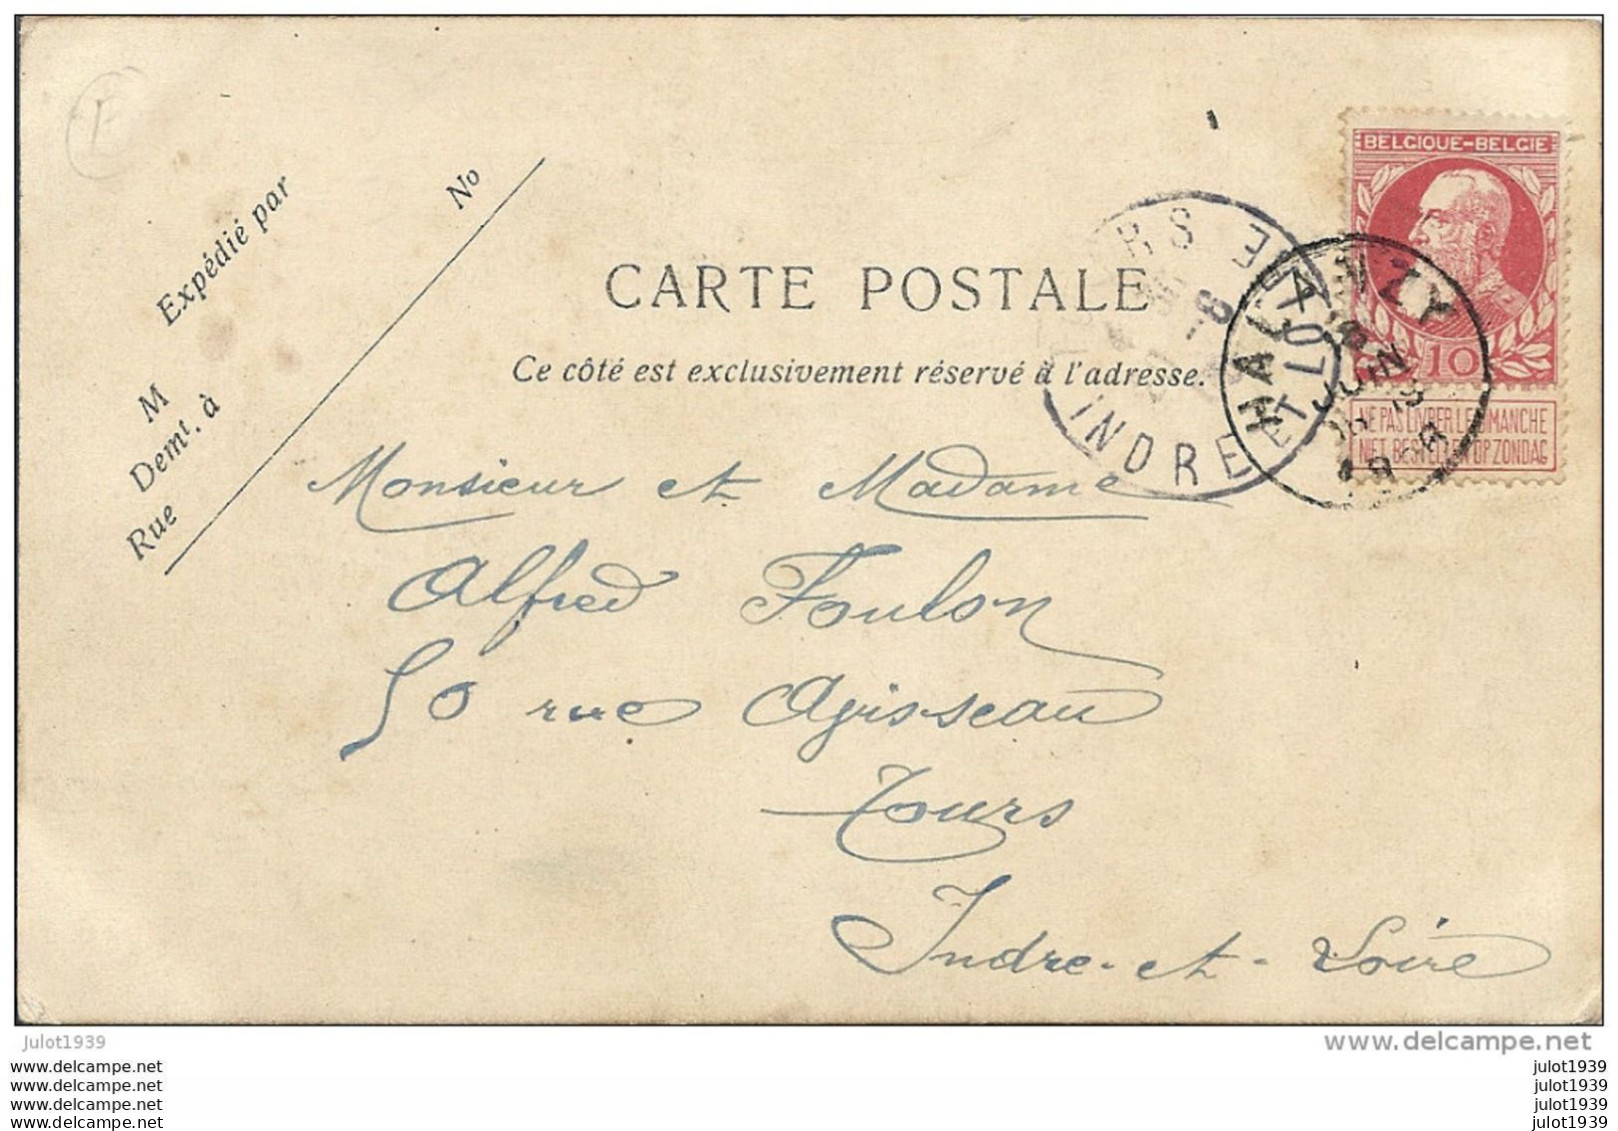 Expédié par
No
M
Demt. à
Rue
CARTE POSTALE
Ce côté est exclusivement réservé à l'adresse.
BELGIQUE-BELGIE
10
NE PAS LIVRER LE DIMANCHE
NIET BESTELLEN OP ZONDAG
HALANZY
JUIN
INDRE ET LOIRE
Monsieur et Madame
Alfred Foulon
50 rue Agisseau
Tours
Indre-et-Loire
www.delcampe.net
julot1939
www.delcampe.net
www.delcampe.net
www.delcampe.net
www.delcampe.net
julot1939
julot1939
julot1939
julot1939